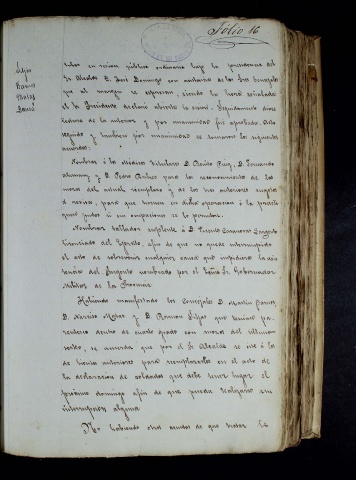 Folio 16
tales en sesion pública ordinaria bajo la presidencia del
Sr. Alcalde D. José Domingo con asistencia de los Sres Concejales
que al margen se expresan, siendo la hora señalada
el Sr Presidente declaró abierta la sesion. Seguidamente diose
lectura de la anterior y por unanimidad fué aprobada. Acto
seguido y tambien por unanimidad se tomaron los siguientes
acuerdos.
Nombrar á los Médicos titulares D. Benito Puig, D. Fernando
y D. Pedro para los reconocimientos de los
mozos del actual reemplazo y de los tres anteriores sugetos
á revision, para que turnen en dicha operacion ó la practi-
quen juntos si sus ocupaciones se lo permiten.
Nombrar tallador suplente á D. Vicente Casanovas Sargento
licenciado del Egercito, afin de que no quede interrumpido
el acto de sobrevenir cualquier causa que impidiera la asis
tencia del Sargento nombrado por el Exmo Sr. Gobernador
Militar de la Provincia.
Habiendo manifestado los Concejales D. Martin
D. Narciso y D. Ramon que tenian pa-
rentesco dentro de cuarto grado con mozos del último
sorteo, se acuerda que por el Sr Alcalde se cite á los
de bienios anteriores para reemplazarles en el acto de
la declaracion de soldados que debe tener lugar el
próximo domingo afin de que pueda realizarse sin
interrupcion alguna.
No habiendo otros asuntos de que tratar se